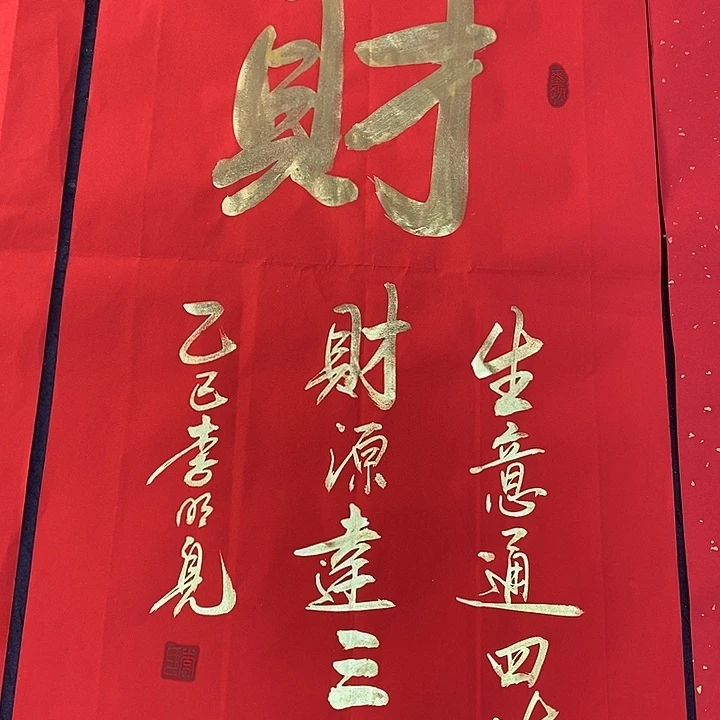 財
生意通四
財源達三
乙巳李明見